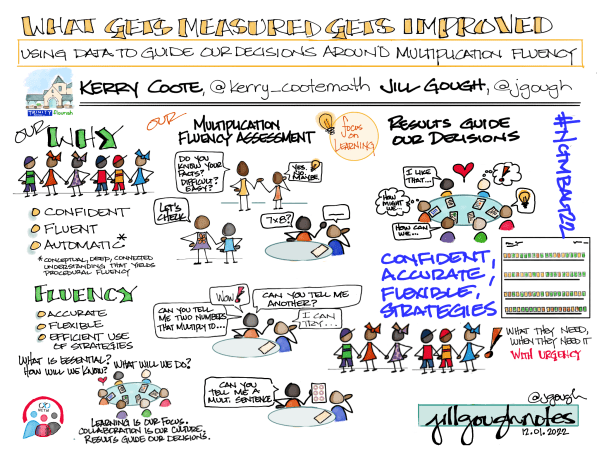 WHAT GETS MEASURED GETS IMPROVED
USING DATA TO GUIDE OUR DECISIONS AROUND MULTIPLICATION FLUENCY
TRINITY flourish
KERRY COOTE, @kerry_cootemath JILL GOUGH, @jgough
OUR WHY
CONFIDENT
FLUENT
AUTOMATIC*
*CONCEPTUAL, DEEP, CONNECTED
UNDERSTANDING THAT YIELDS
PROCEDURAL FLUENCY
FLUENCY
ACCURATE
FLEXIBLE
EFFICIENT USE
OF STRATEGIES
WHAT IS ESSENTIAL?
HOW WILL WE KNOW?
WHAT WILL WE DO?
NCTM
LEARNING IS OUR FOCUS.
COLLABORATION IS OUR CULTURE.
RESULTS GUIDE OUR DECISIONS.
OUR
MULTIPLICATION
FLUENCY ASSESSMENT
focus
on
LEARNING
DO YOU
KNOW YOUR
FACTS?
DIFFICULT?
EASY?
YES.
NO.
MAYBE
LET'S
CHECK.
7x8?
...
WOW!
CAN YOU TELL
ME TWO NUMBERS
THAT MULTIPLY TO...
CAN YOU TELL ME
ANOTHER?
I CAN
TRY...
CAN YOU
TELL ME A
MULT. SENTENCE
RESULTS GUIDE
OUR DECISIONS
I LIKE
THAT...
HOW
MIGHT
WE...
HOW CAN
WE...
#NCTMBALT22
CONFIDENT,
ACCURATE,
FLEXIBLE,
STRATEGIES
WHAT THEY NEED,
WHEN THEY NEED IT
WITH URGENCY
@jgough
jillgoughnotes
12.01.2022